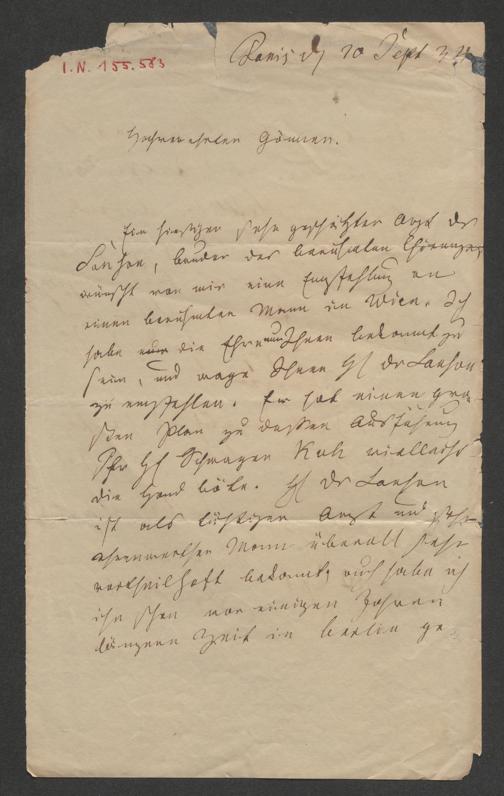 I.N. 155.583
Paris d 20 Sept
Hochverehrter Gönner.
Ein hiesiger sehr geschätzter Arzt Dr
bruder des berühmten
wünscht von mir eine Empfehlung an
einen berühmten Mann in Wien. Ich
habe nur die Ehre Ihnen bekannt zu
sein, und wage Ihnen H Dr
zu empfehlen. Er hat einen gro-
ßen Plan zu dessen Ausführung
Ihr H Schwager vielleicht
die Hand böte. H Dr
ist als tüchtiger Arzt und sehr
ehrenwerther Mann überall sehr
vortheilhaft bekannt, auch habe ich
ihn schon vor einigen Jahren
längere Zeit in berlin ge-